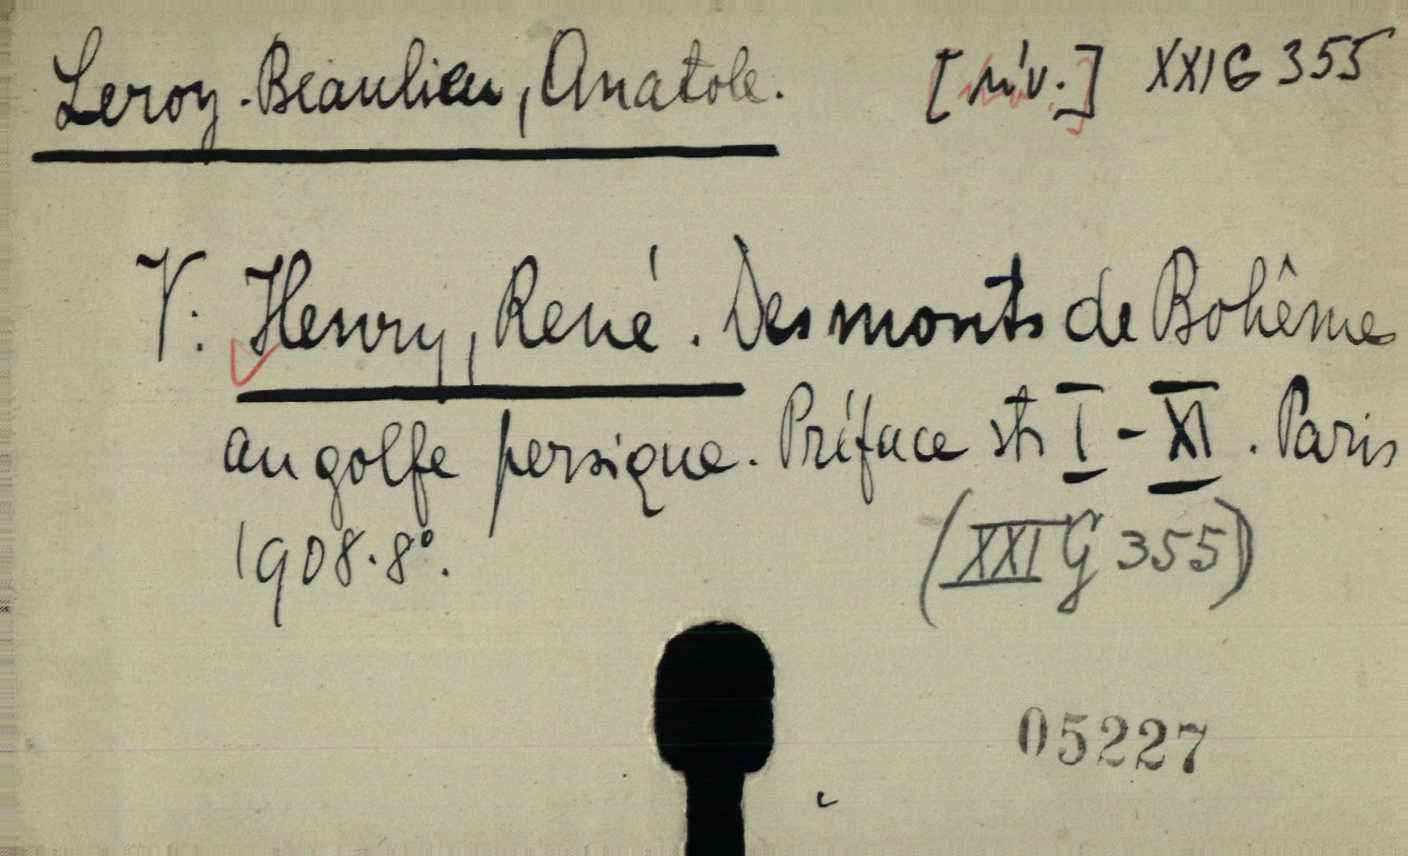 Leroy-Beaulieu, Anatole. [niv.] XXI G 355
V. Henry, René. Des monts de Bohême
au golfe persique. Préface str I - XI. Paris
1908. 8°. (XXI G 355)
05227